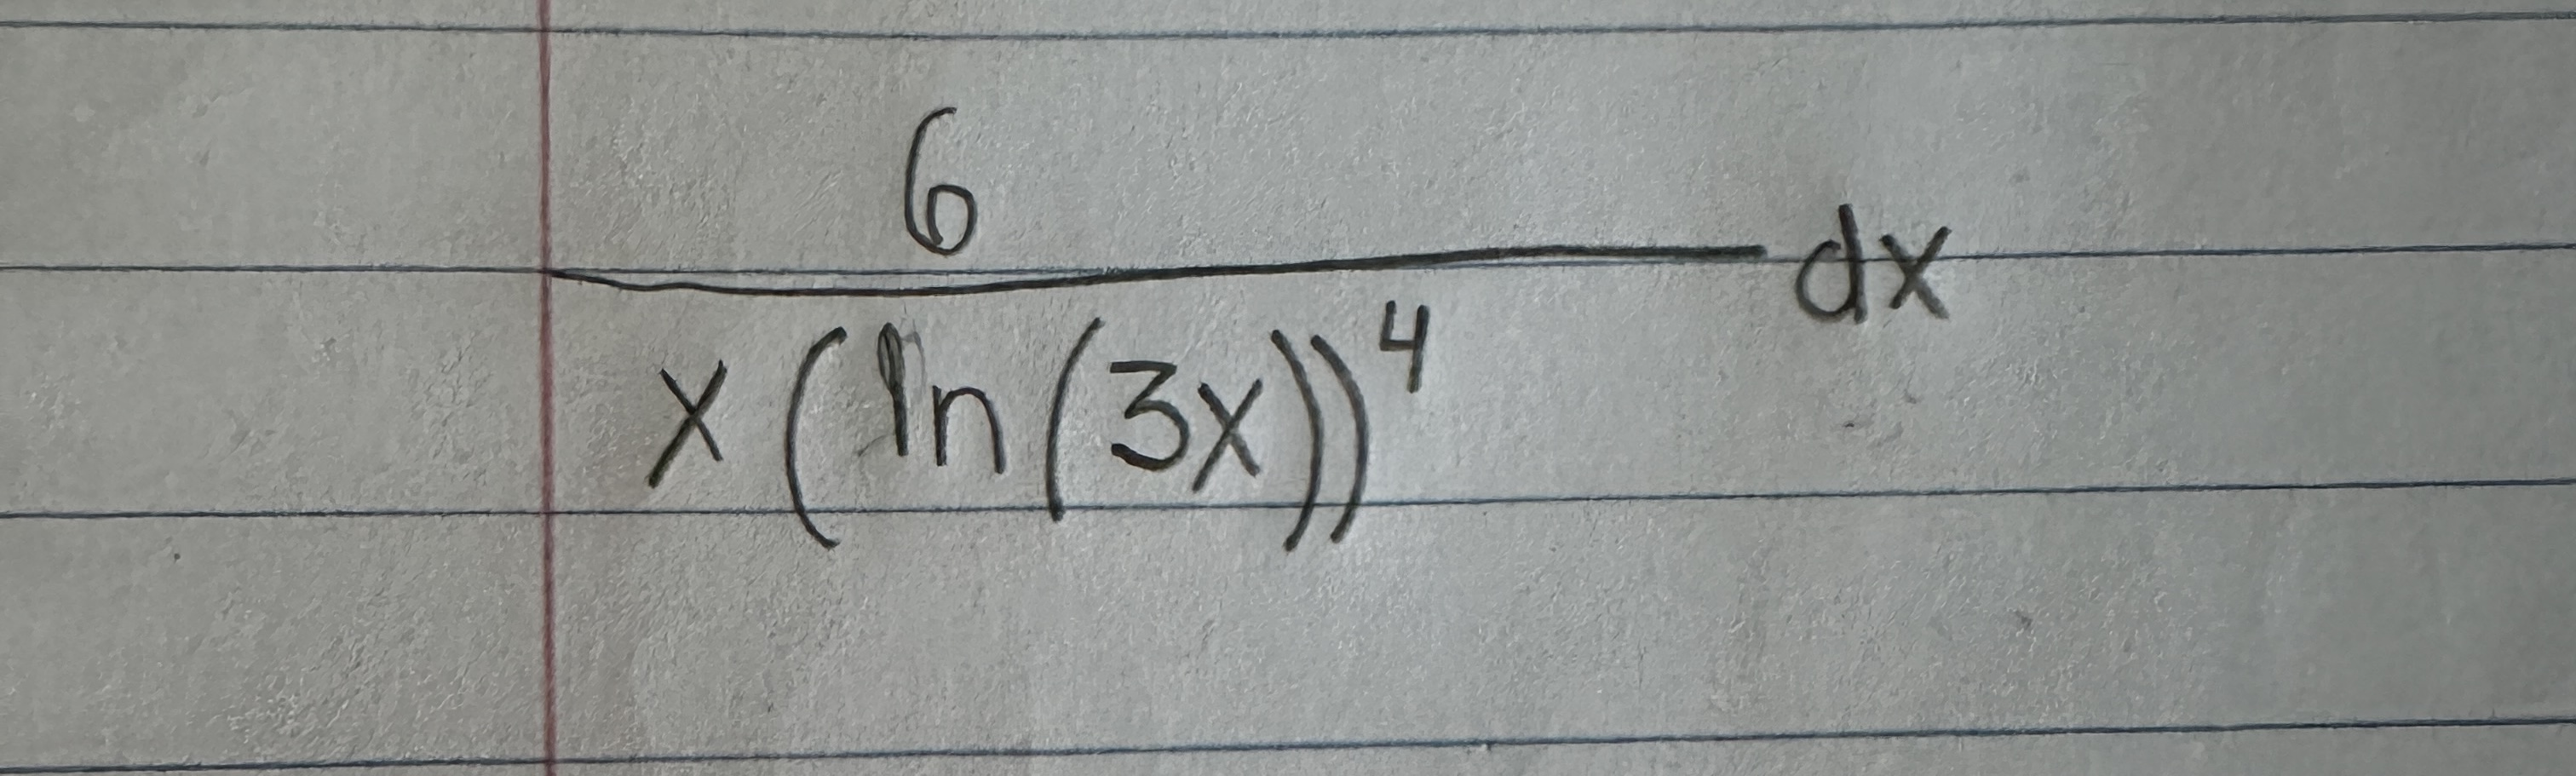 6
x(ln(3x))⁴ dx